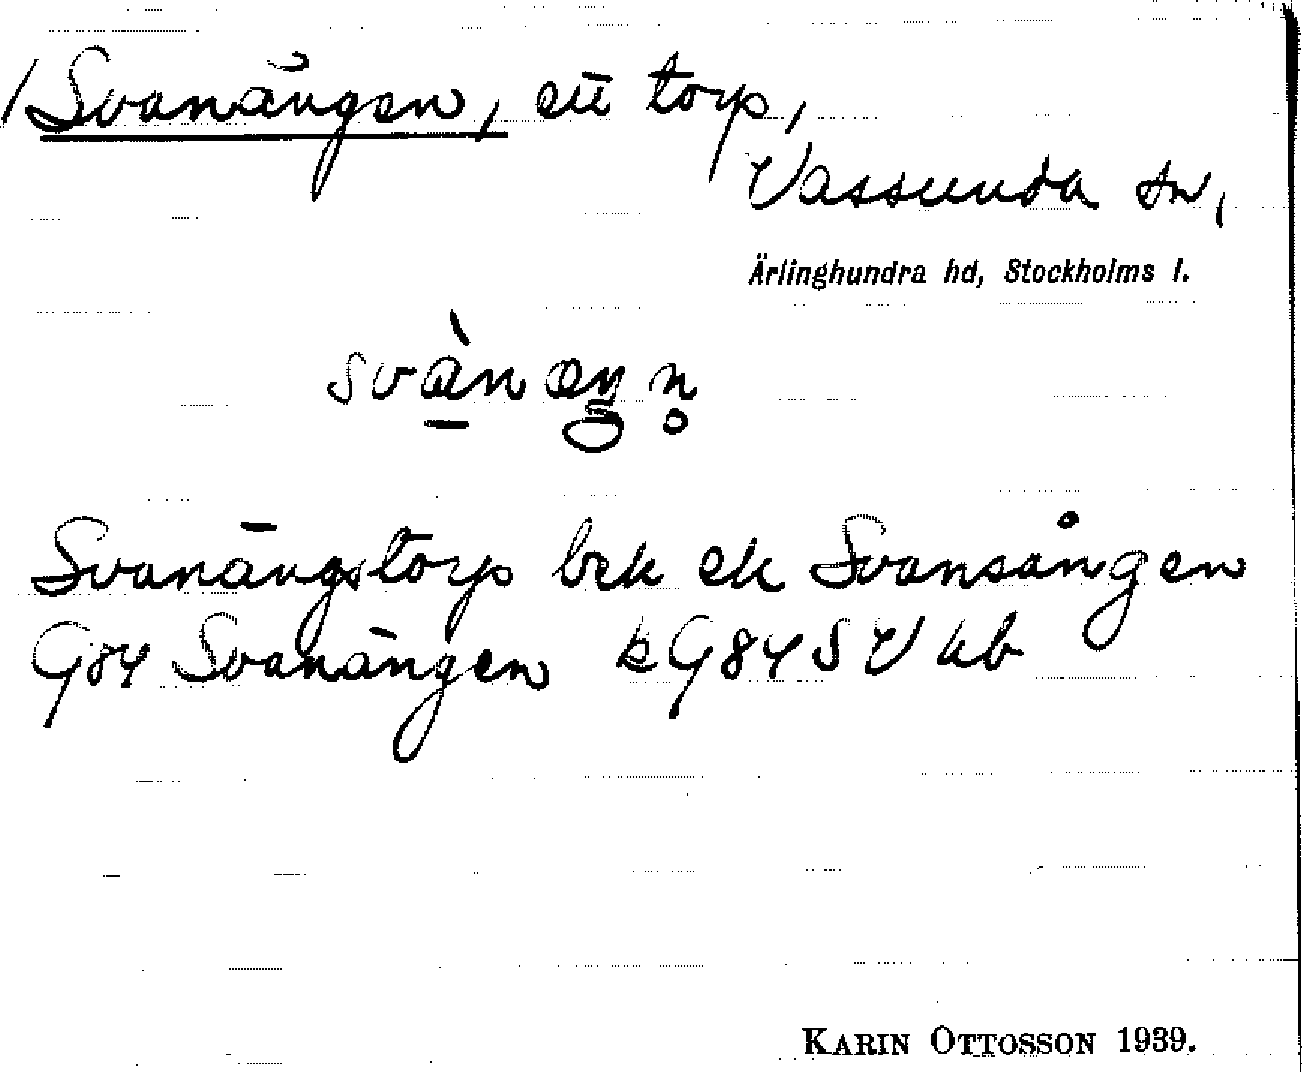 Svanängen, ett torp,
Vassunda sn,
Ärlinghundra hd, Stockholms l.
Svanängstorp bek ek Svansången
G84 Svanängen k G84 S V kb
KARIN OTTOSSON 1939.